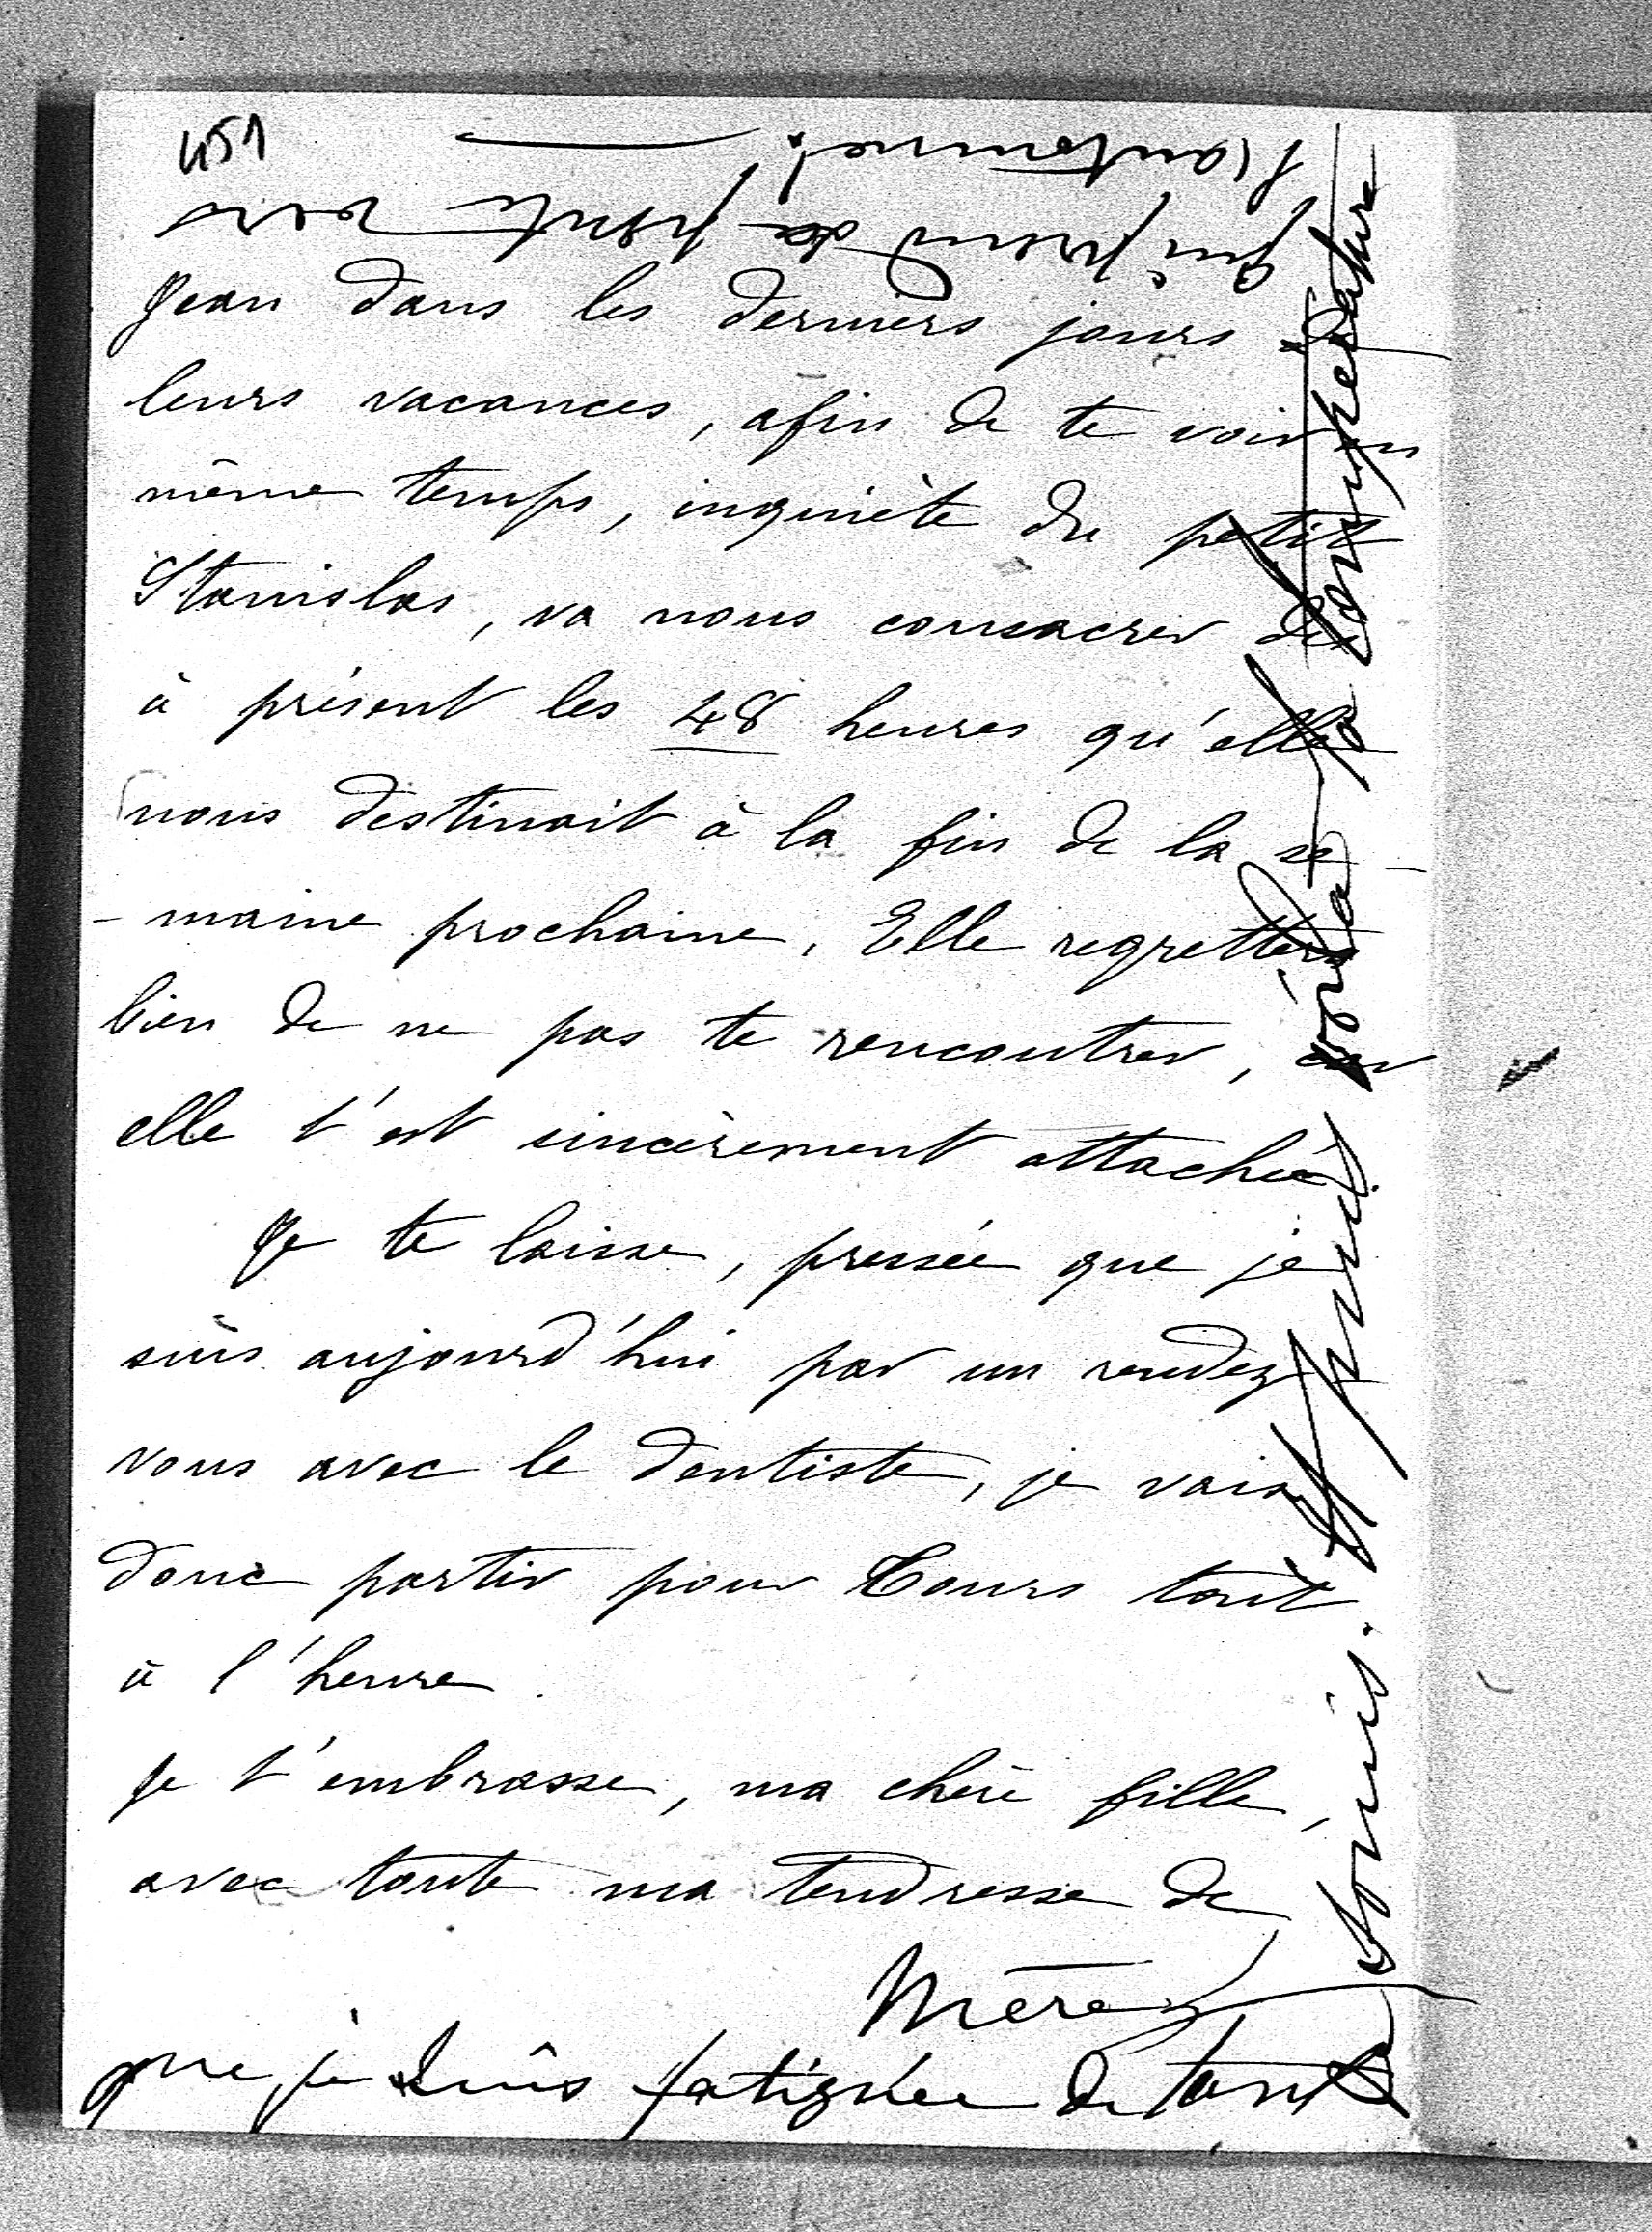 451
Jean dans les derniers jours de
leurs vacances, afin de te voir en
même temps, inquiète du petit
Stanislas, va nous consacrer dès
à présent les 48 heures qu'elle
nous destinait à la fin de la se-
-maine prochaine. Elle regrettera
bien de ne pas te rencontrer, car
elle t'est sincèrement attachée.
Je te laisse, pressée que je
suis aujourd'hui par un rendez
vous avec le dentiste, je vais
donc partir pour Tours tout
à l'heure.
Je t'embrasse, ma chère fille,
avec toute ma tendresse de
Mère
que je suis fatiguée de tant
Et puis voilà la température
qui prend sa pente vers
l'automne!